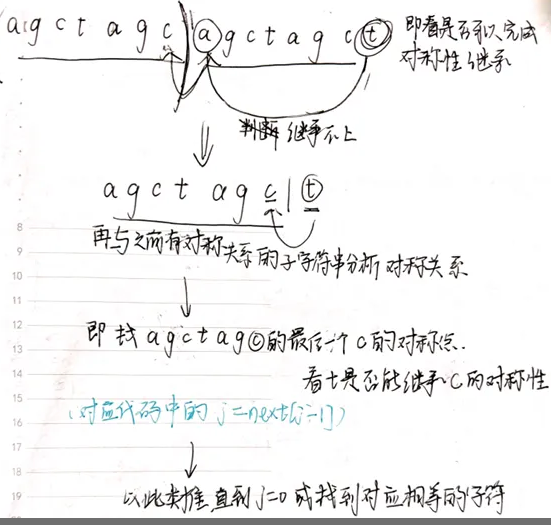 agctagc agctagct
即看是否可以完成
对称性继承
判断继承不上
agctagc|t
再与之前有对称关系的子字符串分析对称关系
即找agctagc的最后一个c的对称点.
看t是否能继承C的对称性
(对应代码中的 j=next[j-1])
以此类推直到j=0或找到对应相等的字符
8
9
10
11
12
13
14
15
16
17
18
19